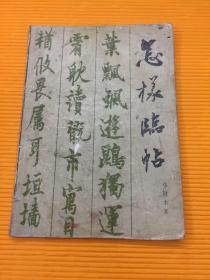 怎樣臨帖
葉飄颻遊鵾獨運
霄耽讀翫市寓目
輶攸畏屬耳垣墻